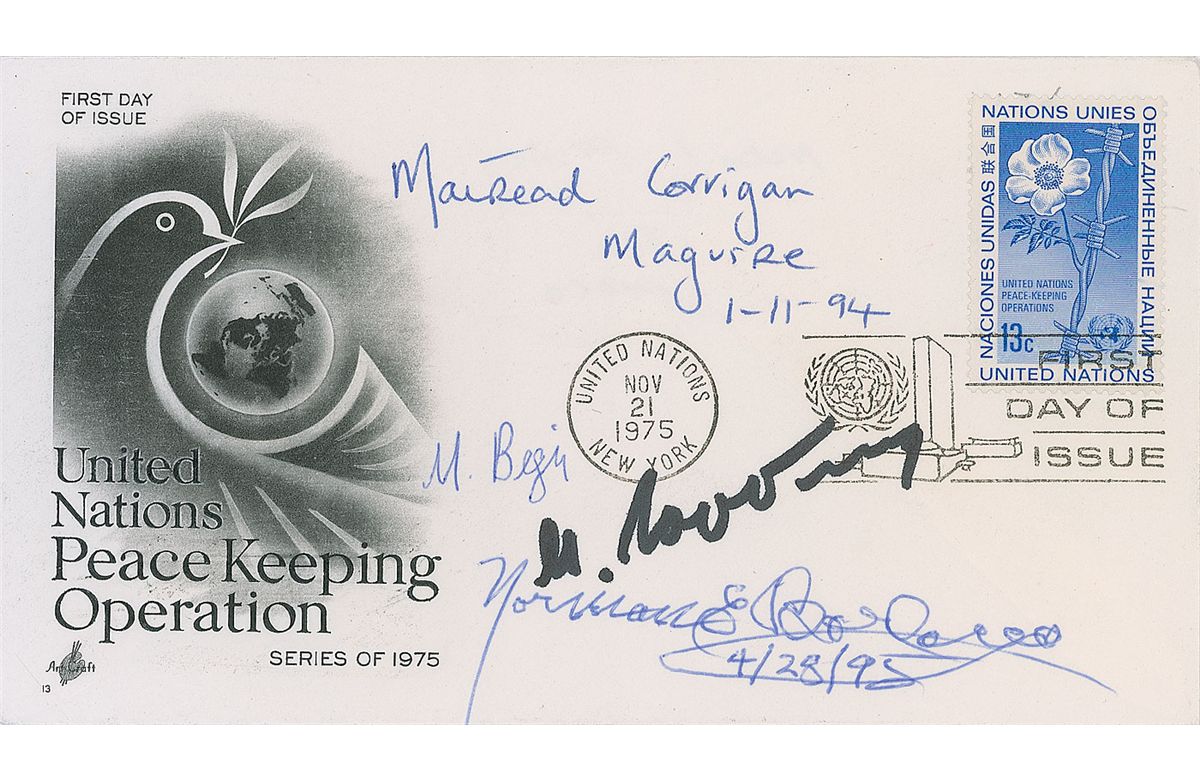 FIRST DAY
OF ISSUE
Mairead Corrigan
Maguire
1-11-94
NATIONS UNIES
ОБЪЕДИНЕННЫЕ НАЦИИ
NACIONES UNIDAS 联合国
UNITED NATIONS
PEACE-KEEPING
OPERATIONS
13c
UNITED NATIONS
UNITED NATIONS
NOV
21
1975
NEW YORK
FIRST
DAY OF
ISSUE
M. Begin
M.
Norman E Borlaug
4/28/95
United
Nations
Peace Keeping
Operation
SERIES OF 1975
ArtCraft
13